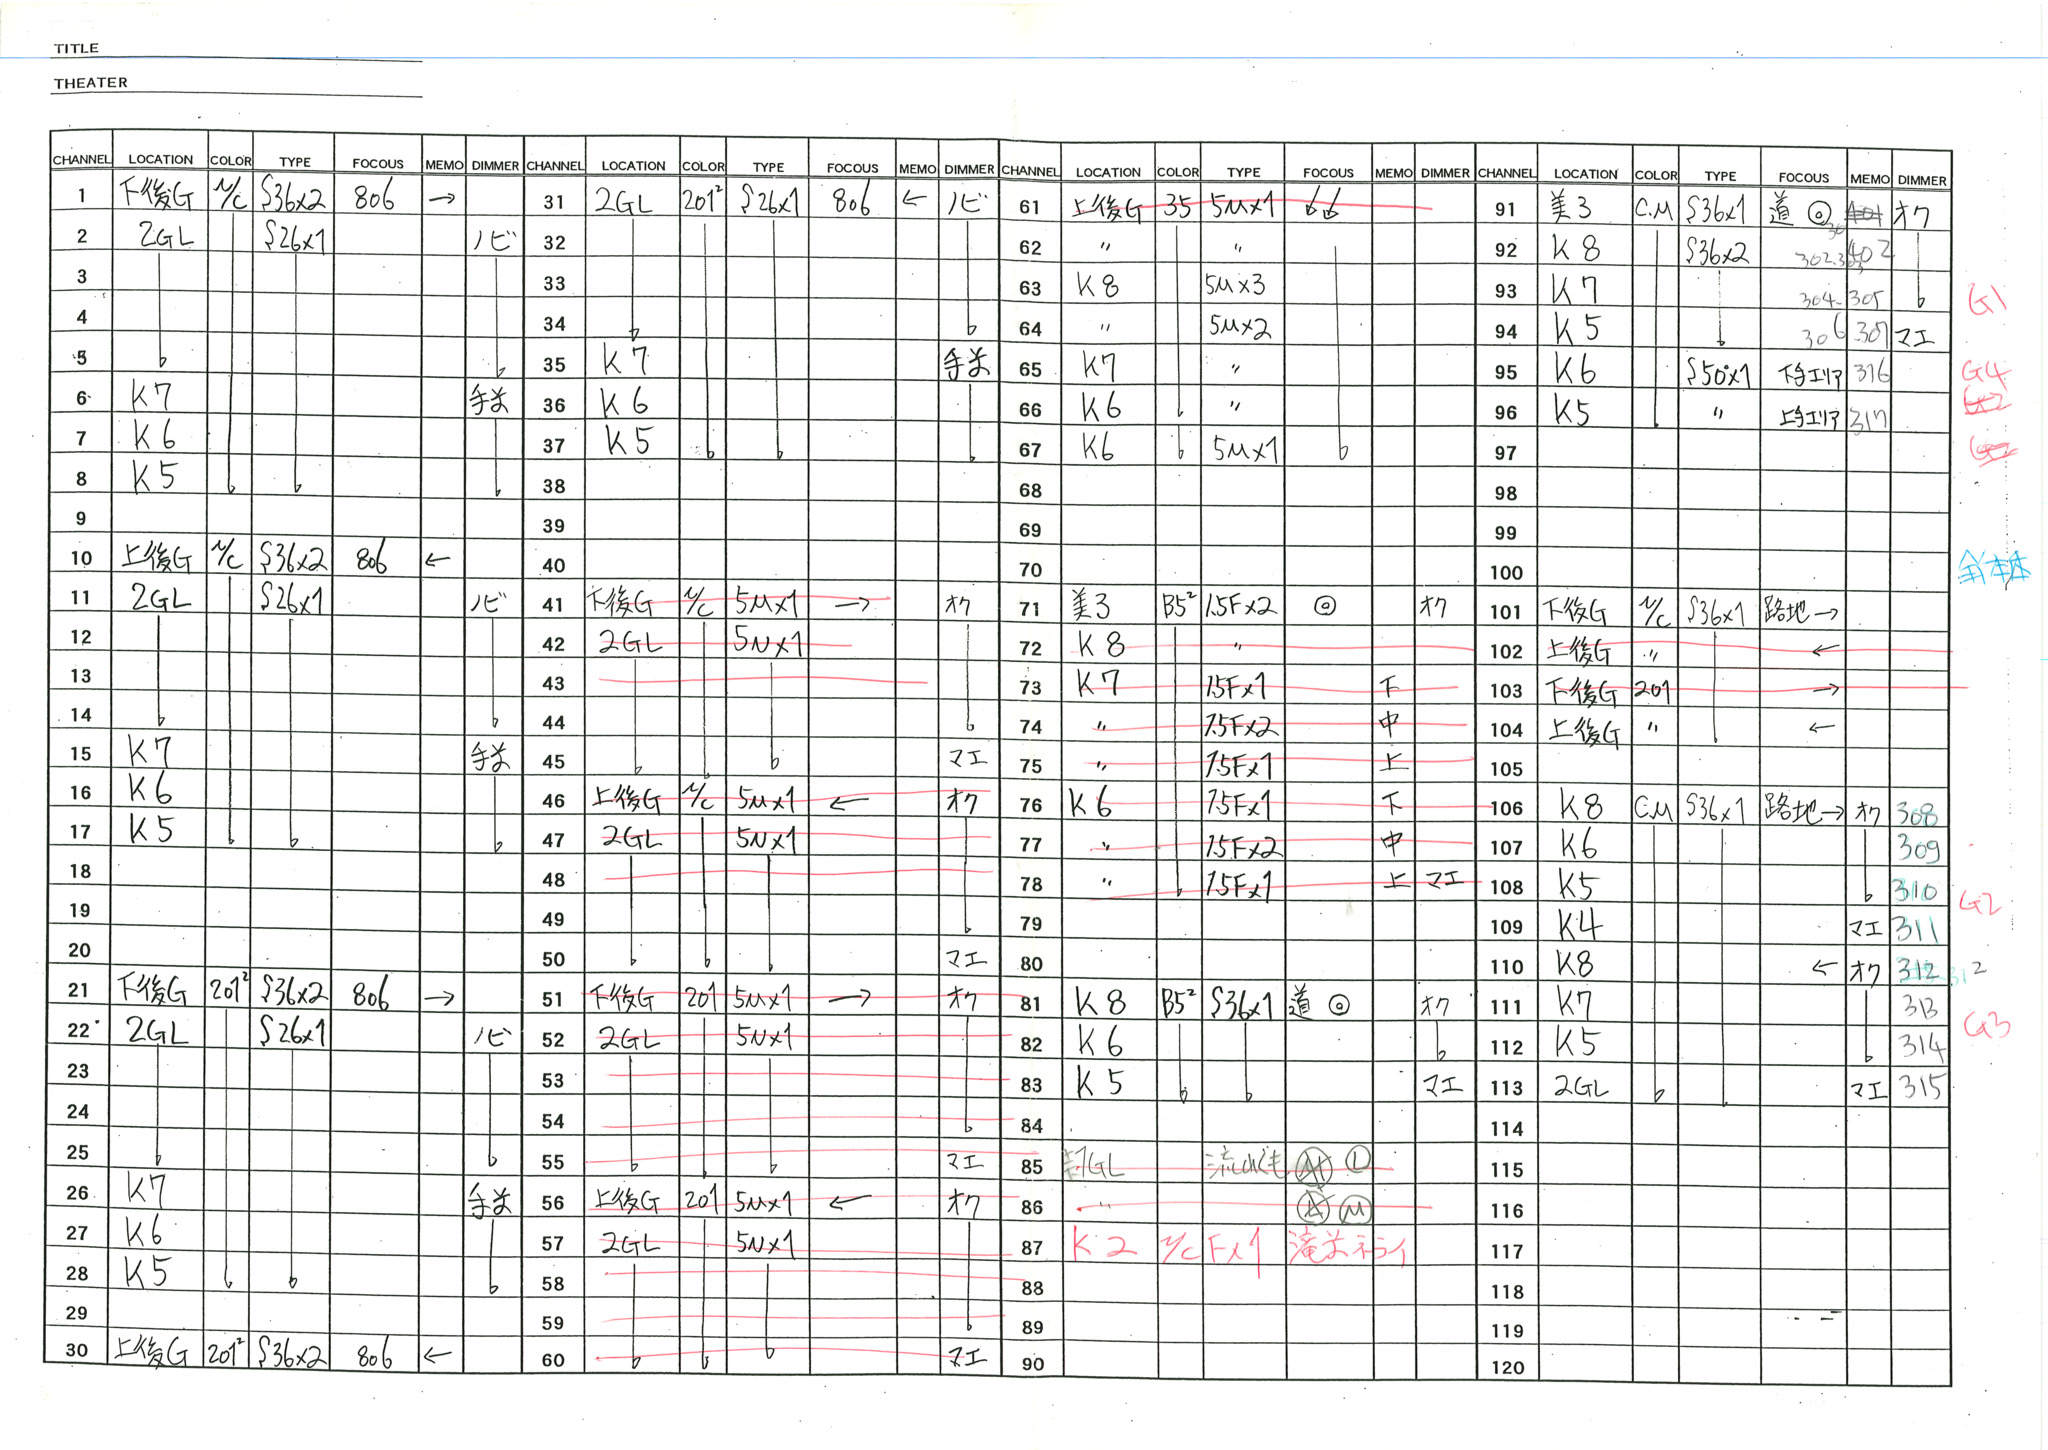 TITLE
THEATER
CHANNEL LOCATION COLOR TYPE FOCOUS MEMO DIMMER CHANNEL LOCATION COLOR TYPE FOCOUS MEMO DIMMER CHANNEL LOCATION COLOR TYPE FOCOUS MEMO DIMMER CHANNEL LOCATION COLOR TYPE FOCOUS MEMO DIMMER
1 下後G N/C S36x2 806 →
2 2GL S26x1 ノビ
3
4
5
6 K7
7 K6
8 K5
9
10 上後G N/C S36x2 806 ←
11 2GL S26x1 ノビ
12
13
14
15 K7
16 K6
17 K5
18
19
20
21 下後G 201² S36x2 806 →
22 2GL S26x1 ノビ
23
24
25
26 K7
27 K6
28 K5
29
30 上後G 201² S36x2 806 ←
31 2GL 201² S26x1 806 ← ノビ
32
33
34
35 K7
36 K6
37 K5
38
39
40
41 下後G N/C 5Mx1 → オク
42 2GL 5Nx1
43
44
45 マエ
46 上後G N/C 5Mx1 ← オク
47 2GL 5Nx1
48
49
50 マエ
51 下後G 201 5Mx1 → オク
52 2GL 5Nx1
53
54
55 マエ
56 上後G 201 5Mx1 ← オク
57 2GL 5Nx1
58
59
60 マエ
61 上後G 35 5Mx1
62 〃 〃
63 K8 5Mx3
64 〃 5Mx2
65 K7 〃
66 K6 〃
67 K6 5Mx1
68
69
70
71 美3 B5² 1.5Fx2 ◎ オク
72 K8 〃
73 K7 1.5Fx1 下
74 〃 1.5Fx2 中
75 〃 1.5Fx1 上
76 K6 1.5Fx1 下
77 〃 1.5Fx2 中
78 〃 1.5Fx1 上 マエ
79
80
81 K8 B5² S36x1 道 ◎ オク
82 K6
83 K5 マエ
84
85 GL Ⓛ
86 〃 Ⓜ
87 K2 N/C Fx1 滝 ネライ
88
89
90
91 美3 C.M S36x1 道 ◎ オク
92 K8 S36x2 302.303 402
93 K7 304-305
94 K5 306.307 マエ
95 K6 S50x1 下手エリア 316
96 K5 〃 上手エリア 317
97
98
99
100
101 下後G N/C S36x1 路地→
102 上後G 〃 ←
103 下後G 201 →
104 上後G 〃 ←
105
106 K8 C.M S36x1 路地→ オク 308
107 K6 309
108 K5 310
109 K4 マエ 311
110 K8 ← オク 312 312
111 K7 313
112 K5 314
113 2GL マエ 315
114
115
116
117
118
119
120
G1
G4
G2
G3